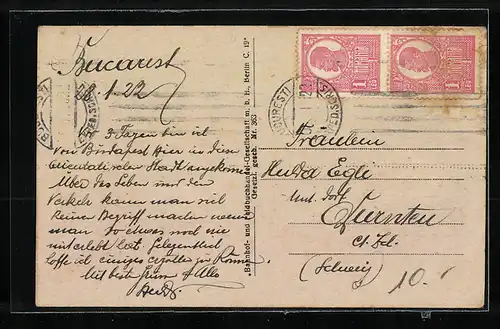 Bucarest
8.1.22
3 Tagen bin ich
von Budapest hier in dieser
orientalischen Stadt angekommen
Über das Leben und den
Verkehr kann man sich
keinen Begriff machen wenn
man so etwas noch nie
miterlebt hat. Gelegentlich
hoffe ich einiges erzählen zu können
Mit best. Gruss a. Alle
"Bahnhof- und Feldbuchhandel-Gesellschaft m. b. H., Berlin C. 19"
Gesetzl. gesch. Nr. 363
BUCURESTI
1 LEU
1 LEU
Fräulein
Hulda Egli
Unt. Dorf
Dürnten
Ct. Zch.
(Schweiz)
10.-